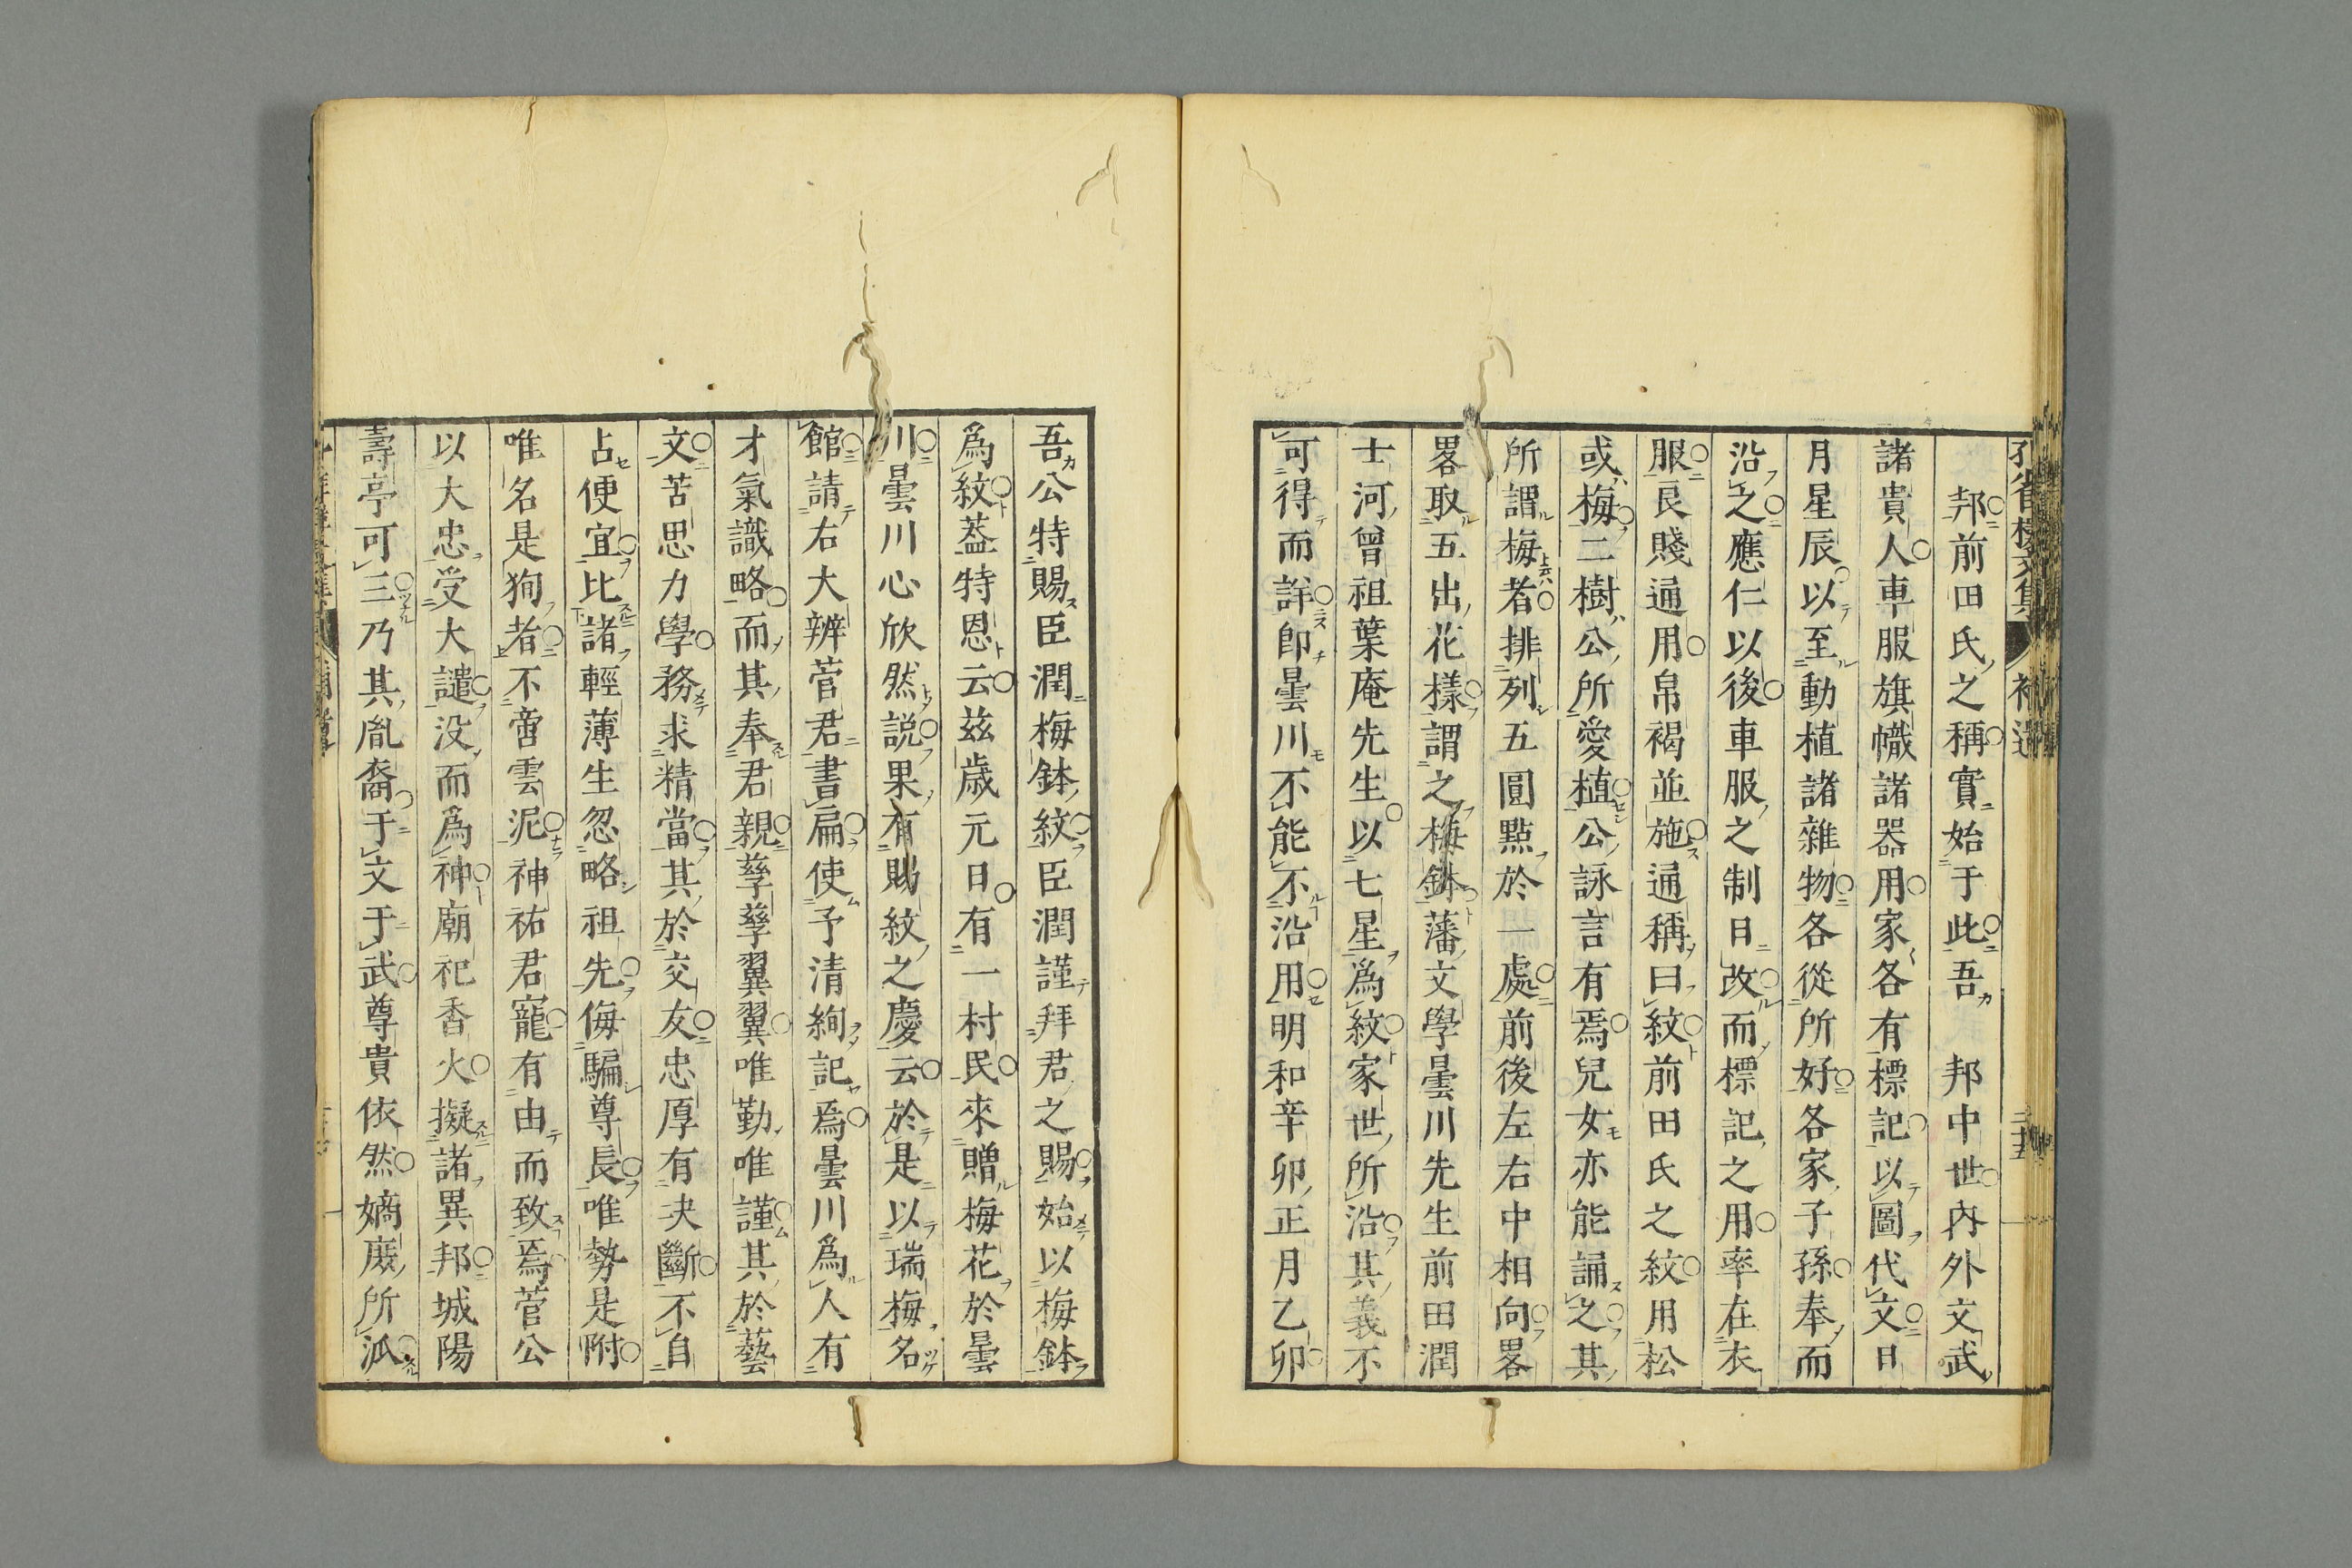 邦前田氏之稱實始于此吾 邦中世内外文武
諸貴人車服旗幟諸器用家各有標記以圖代文日
月星辰以至動植諸雜物各從所好各家子孫奉而
沿之應仁以後車服之制日改而標記之用率在衣
服良賤通用帛褐並施通稱曰紋前田氏之紋用松
或梅二樹公所愛植公詠言有焉兒女亦能誦之其
所謂梅者排列五圓點於一處前後左右中相向畧
畧取五出花樣謂之梅鉢藩文學曇川先生前田潤
士河曾祖葉庵先生以七星爲紋家世所沿其義不
可得而詳卽曇川不能不沿用明和辛卯正月乙卯
吾公特賜臣潤梅鉢紋臣潤謹拜君之賜始以梅鉢
爲紋葢特恩云玆歳元日有一村民來贈梅花於曇
川曇川心欣然説果有賜紋之慶云於是以瑞梅名
館請右大辨菅君書扁使予清絢記焉曇川爲人有
才氣識略而其奉君親孳孳翼翼唯勤唯謹其於藝
文苦思力學務求精當其於交友忠厚有决斷不自
占便宜比諸輕薄生忽略祖先侮騙尊長唯勢是附
唯名是狥者不啻雲泥神祐君寵有由而致焉菅公
以大忠受大譴没而爲神廟祀香火擬諸異邦城陽
壽亭可三乃其胤裔于文于武尊貴依然嫡庻所泒